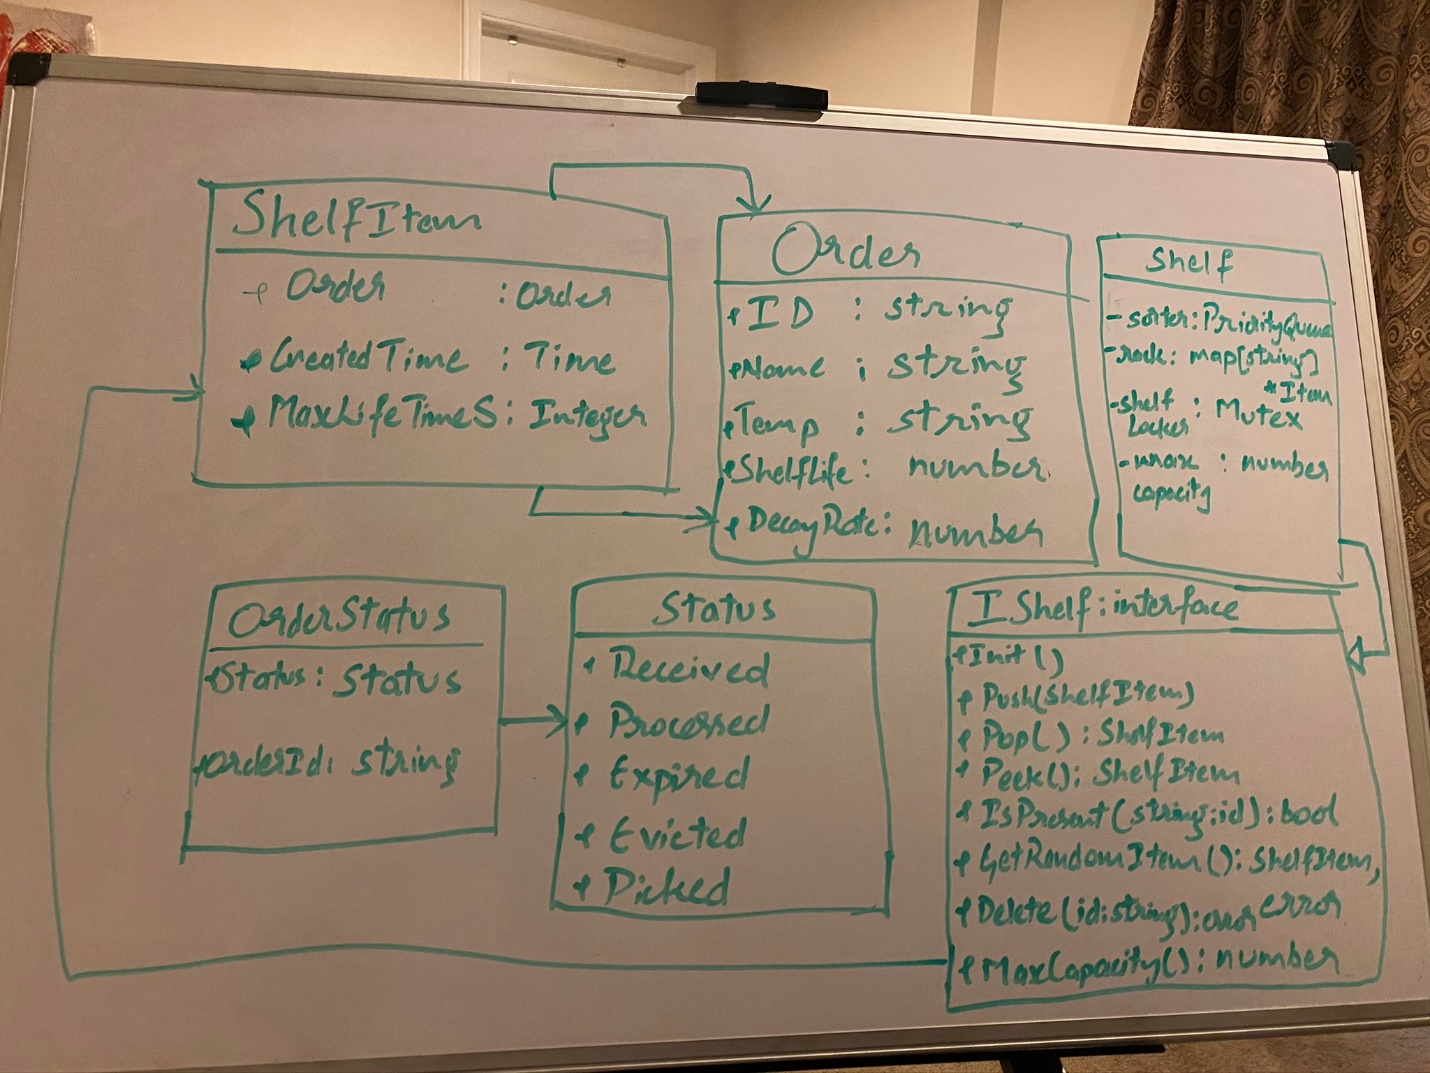 ShelfItem
+ Order : Order
+ CreatedTime : Time
+ MaxLifeTimeS : Integer
Order
+ ID : string
+ Name : string
+ Temp : string
+ ShelfLife : number
+ DecayRate : number
Shelf
- sorter : PriorityQueue
- rack : map[string]
*Item
- shelf : Mutex
Locker
- max : number
capacity
OrderStatus
+ Status : Status
+ OrderId : string
Status
+ Received
+ Processed
+ Expired
+ Evicted
+ Picked
IShelf : interface
+ Init()
+ Push(ShelfItem)
+ Pop() : ShelfItem
+ Peek() : ShelfItem
+ IsPresent(string:id) : bool
+ GetRandomItem() : ShelfItem,
error
+ Delete(id:string) : error
+ MaxCapacity() : number